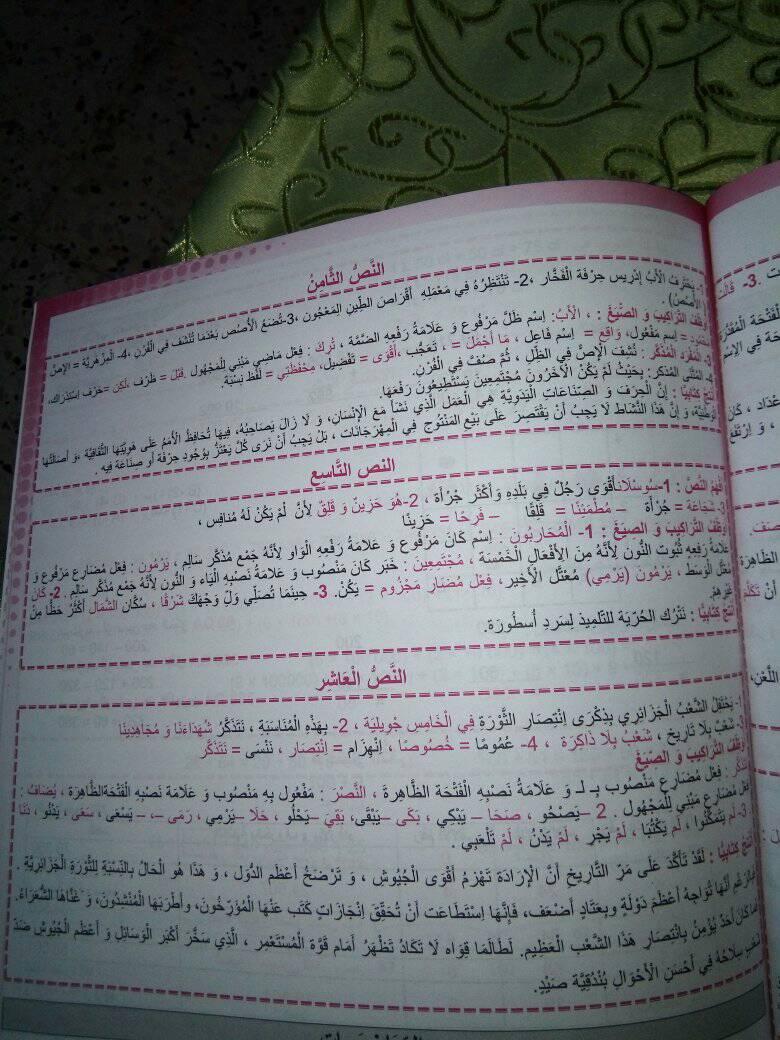 النَّصُ الثَّامنُ
1- يَحْتَرِفُ الْأَبُ إدْرِيس حِرْفَة الْفَخَّار ،2- تَنْتَظِرُهُ فِي مَعْمَلِهِ أَقْرَاصَ الطِّينِ المَعْجُون ،3-تُصْنَعُ الْأُصُصُ بَعْدَمَا تُنَشَّف فِي الْفُرْنِ ،4- الْمِزْهَرِيَّة = الإِصُ
( الْأُصُصُ) .
وَظِّف التَّرَاكِيبَ وَ الصِّيَغَ : ، الْأَبُ: اِسْم ظَلَّ مَرْفُوع وَ عَلَامَةُ رَفْعِهِ الضَّمَّة ، تُرِكَ : فِعْل مَاضِي مَبْنِي لِلْمَجْهُولِ .قَبْلَ = ظَرْف ،لَكِنَ =حَرْف اِسْتِدْرَاك،
= اِسْم مَفْعُول، وَاقِع = اِسْم فَاعِل ، مَا أَجْمَلَ = ، تَعَجُب ،أَقْوَى = تَفْضِيل، مِحْفَظَتِي = لَفْظ نِسْبَة.
3- الْمُفْرَد الْمُذَكَّر : نَشِف الإِصُّ فِي الظِّلِ ، ثُمَّ صُفَّ فِي الْفُرْنِ.
4- الْمُثَنَّى المُذَكر: بِحَيْثُ لَمْ يَكُنْ الْآخَرُونَ مُجْتَمِعِينَ يَسْتَطِيعُونَ رَفْعَهَا.
أُنْتِجُ كِتَابِيًّا : إِنَّ الْحِرَفَ وَ الصِّنَاعَاتِ الْيَدَوِيَّةِ هِيَ الْعَمَلُ الَّذِي نَشَأَ مَعَ الْإِنْسَانِ، وَ لَا زَالَ يُصَاحِبُهُ، فِيهَا تُحَافِظُ الْأُمَمُ عَلَى هَوِيَّتِهَا الثَّقَافِيَّة ،وَ أَصَالَتَهَا
الوَطَنِيَّة، وَ إِنَّ هَذَا النَّشَاطَ لَا يَجِبُ أَنْ يَقْتَصِرَ عَلَى بَيْعِ الْمَنْتُوجِ فِي الْمِهْرَجَانَات ، بَلْ يَجِبُ أَنْ نَرَى كُلَّ يَعْتَزُّ بِوُجُودِ حِرْفَة أو صِنَاعَة فِيهِ .
النص التَّاسِع
أَفْهَمُ النَّصَّ : 1-سُوسْلَان أَقْوَى رَجُلٍ فِي بَلَدِهِ وَأَكْثَر جُرْأَة ، 2-هُوَ حَزِينٌ وَ قَلِقٌ لِأَنَّ لَمْ يَكُنْ لَهُ مُنَافِس ،
3- شَجَاعَة = جُرْأَة – مُطْمَئِنًّا = قَلِقًا – فَرِحًا = حَزِينًا
وَظِّف التَّرَاكِيبَ وَ الصِّيَغَ : 1- الْمُحَارِبُونَ : اِسْم كَانَ مَرْفُوع وَ عَلَامَةُ رَفْعِهِ الْوَاو لِأَنَّهُ جَمْع مُذَكَّر سَالِم ، يَرْمُون : فِعْل مُضَارِع مَرْفُوع وَ
عَلَامَةُ رَفْعِهِ ثُبُوت النُّون لِأَنَّهُ مِنَ الْأَفْعَالِ الْخَمْسَة ، مُجْتَمِعِين : خَبَر كَانَ مَنْصُوب وَ عَلَامَة نَصْبِهِ الْيَاء وَ النُّون لِأَنَّهُ جَمْع مُذَكَّر سَالِم . 2- كَانَ
مُعْتَلُّ الْوَسَط ، يَرْمُونَ (يَرْمِي) مُعْتَلُّ الْأَخِير، فِعْل مُضَارِ مَجْزُوم = يَكُنْ. 3- حِينَمَا تُصَلِّي وَلِّ وَجْهَكَ شَرْقًا ، سُكَّان الشَّمَال أَكْثَرُ حَظًّا مِنْ
غَيْرِهِمْ.
أُنْتِجُ كِتَابِيًّا : نَتْرُك الْحُرِّيَة لِلتِّلْمِيذِ لِسَرِدِ أُسطُورَة.
النَّصُّ الْعَاشِر
1- يَحْتَفِلُ الشَّعْبُ الْجَزَائِرِي بِذِكْرَى اِنْتِصَارِ الثَّوْرَة فِي الْخَامِسِ جُوِيلِيَة ، 2- بِهَذِهِ الْمُنَاسَبَة ، نَتَذَكَّرُ شُهَدَاءَنَا وَ مُجَاهِدِينَا
3- شَعْبٌ بِلَا تَارِيخ ، شَعْبٌ بِلَا ذَاكِرَة ، 4- عُمُومًا = خُصُوصًا ، اِنْهِزَام = اِنْتِصَار ، نَنْسَى = نَتَذَكَّر
وَظِّف التَّرَاكِيبَ وَ الصِّيَغَ
: فِعْل مُضَارِع مَنْصُوب بِـ لـ وَ عَلَامَةُ نَصْبِهِ الْفَتْحَة الظَّاهِرَة ، النَّصْرَ : مَفْعُول بِهِ مَنْصُوب وَ عَلَامَة نَصْبِهِ الْفَتْحَةالظَّاهِرَة ، يُضَافُ :
فِعْل مُضَارِع مَبْنِي لِلْمَجْهُول . 2 – يَصْحُو ، صَحَا – يَبْكِي ، بَكَى –يَبْقَى، بَقِيَ –يَحْلُو ، حَلَا –يَرْمِي، رَمَى –، – يَسْعَى ، سَعَى ، يَدْنُو ، دَنَا
3- لَمْ يَتَمَكَّنُوا ، لَمْ يَكْتُبَا ، لَمْ يَجْرِ ، لَمْ يَدْنُ ، لَمْ تَلْعَبِي .
أُنْتِجُ كِتَابِيًّا : لَقَدْ تَأَكَّدَ عَلَى مَرِّ التَّارِيخِ أَنَّ الْإِرَادَة تَهْزِمُ أَقْوَى الْجُيُوش ، وَ تَرْضَخُ أَعْظَم الدُّوَل ، وَ هَذَا هُوَ الْحَالُ بِالنِّسْبَةِ لِلثَّوْرَةِ الْجَزَائِرِيَّة .
أَنَّهَا تُوَاجِهُ أَعْظَمَ دَوْلَةٍ وبِعَتَادٍ أَضْعَف، فَإِنَّهَا اِسْتَطَاعَت أَنْ تُحَقِّقَ اِنْجَازَاتٍ كَتَبَ عَنْهَا الْمُؤَرِّخُون، وأَطْرَبَهَا الْمُنْشِدُونَ، وَ غَنَّاهَا الشُّعَرَاءُ.
كَانَ أَحَدٌ يُؤْمِنُ بِانْتِصَارِ هَذَا الشَّعْبِ الْعَظِيمِ. لَطَالَمَا قِوَاه لَا تَكَادُ تَظْهَرُ أَمَامَ قُوَّة الْمُسْتَعْمِر ، الَّذِي سَخَّرَ أَكْبَرَ الْوَسَائِلِ وَ أَعْظَم الْجُيُوشِ ضَدَّ
شَعْبٍ سِلَاحُهُ فِي أَحْسَنِ الْأَحْوَالِ بُنْدُقِيَّة صَيْدٍ.